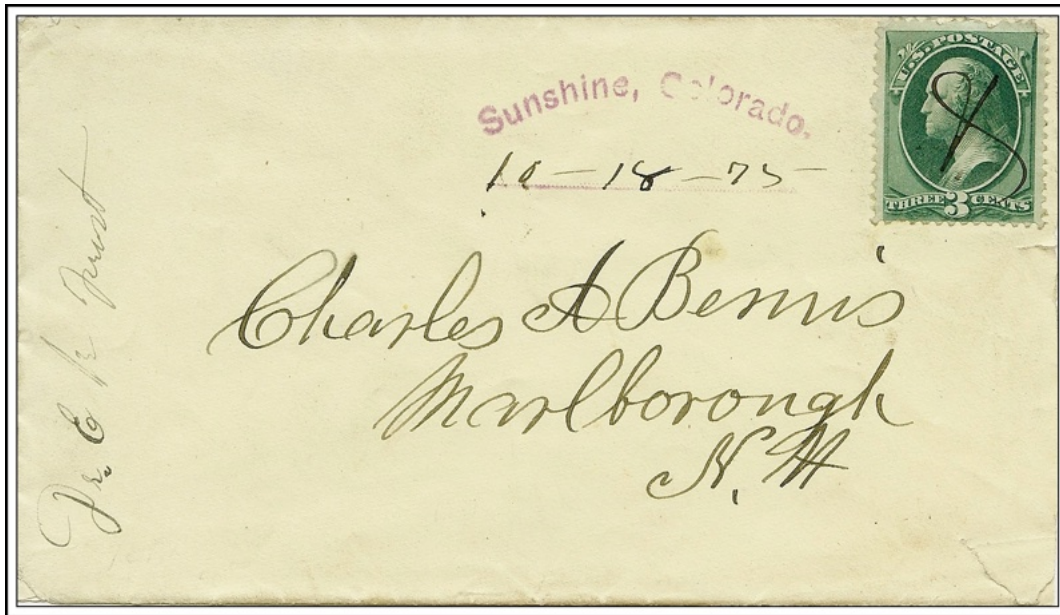 Sunshine, Colorado.
10-18-75
U.S. POSTAGE
THREE 3 CENTS
Charles A Bemis
Marlborough
N. H
E